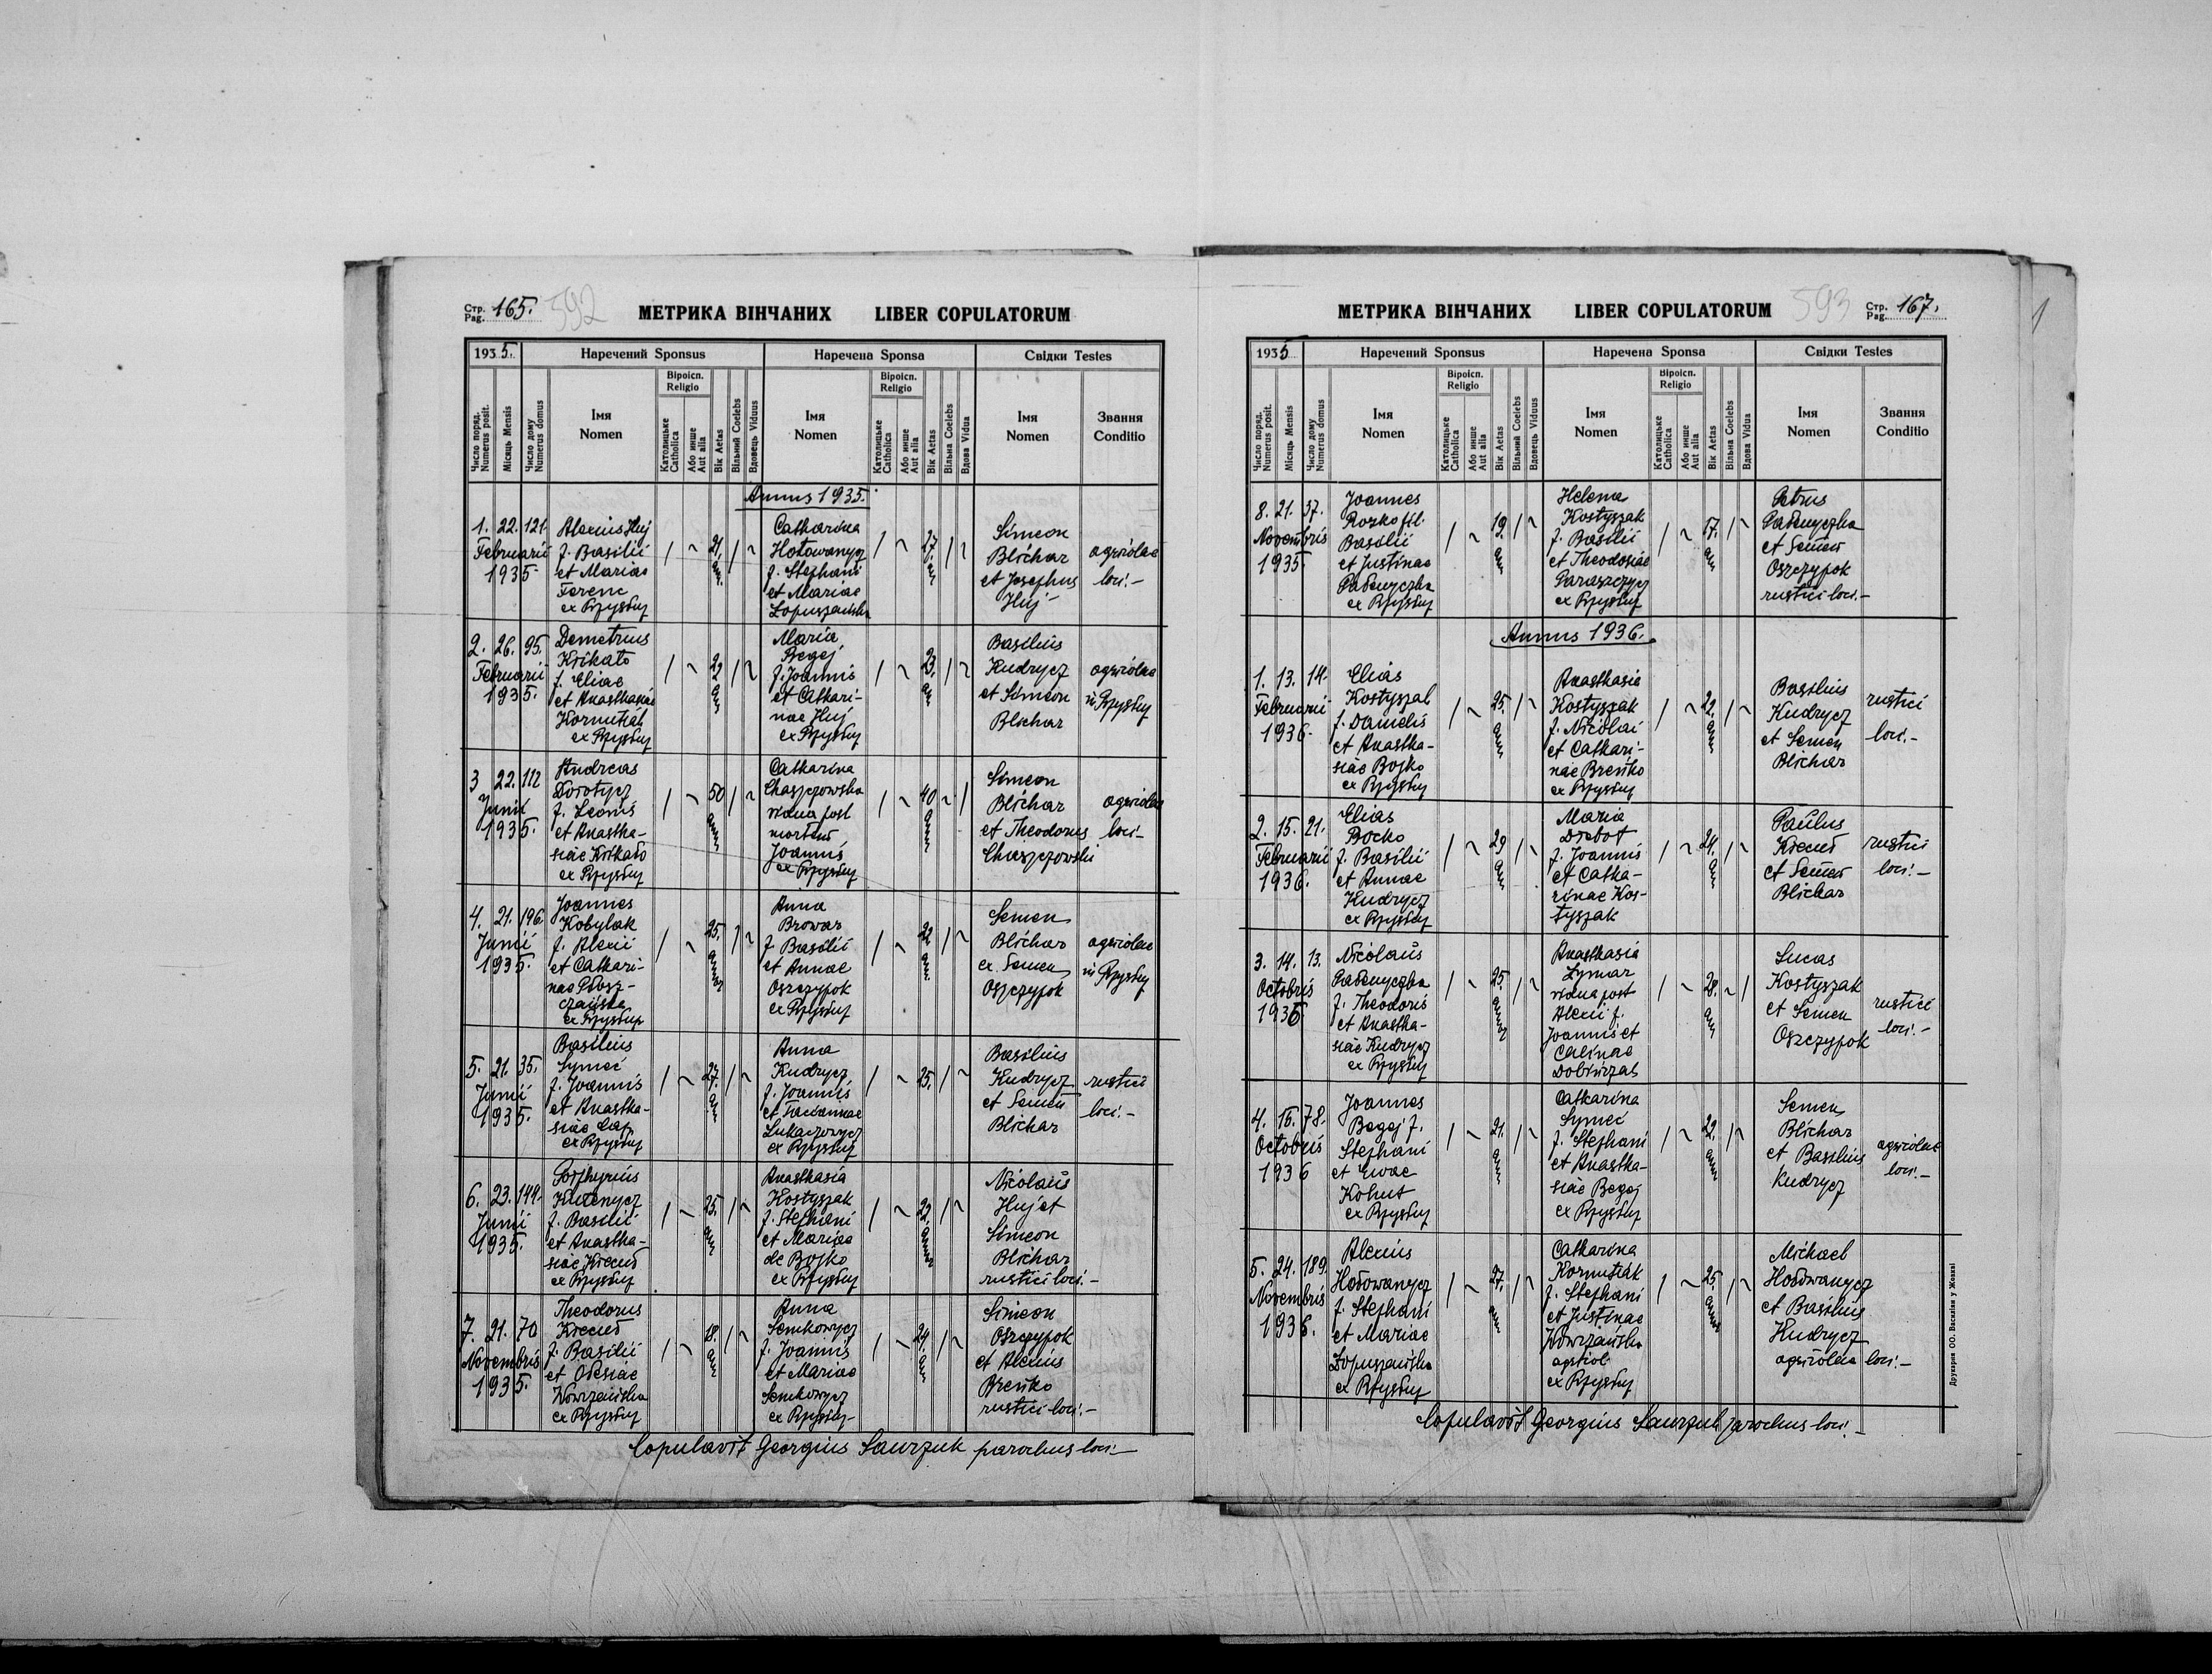 Стр. Pag. 165. 592
МЕТРИКА ВІНЧАНИХ LIBER COPULATORUM
1935.
Наречений Sponsus
Наречена Sponsa
Свідки Testes
Число поряд. Numerus posit.
Місяць Mensis
Число дому Numerus domus
Імя Nomen
Віроісп. Religio
Католицьке Catholica
Або инше Aut alia
Вік Aetas
Вільний Coelebs
Вдовець Viduus
Імя Nomen
Віроісп. Religio
Католицьке Catholica
Або инше Aut alia
Вік Aetas
Вільна Coelebs
Вдова Vidua
Імя Nomen
Звання Conditio
Annus 1935.
1. 22. 121.
Februarii
1935
Alexius Huj
f. Basilii
et Mariae
Ferenc
ex Przysłup
21.
Catharina
Hołowanycz
f. Stephani
et Mariae
Łopuszańska
27.
Simeon
Blichar
et Josephus
Huj
agricolae
loci.-
2. 26. 95.
Februarii
1935.
Demetrius
Krikało
f. Eliae
et Anasthasiae
Kornutiak
ex Przysłup
22
Maria
Begej
f. Joannis
et Cathari-
nae Huj
ex Przysłup
23.
Basilius
Kudrycz
et Simeon
Blichar
agricolae
in Przysłup
3 22. 112
Junii
1935.
Andreas
Dorotycz
f. Leonis
et Anastha-
siae Krikało
ex Przysłup
50
Catharina
Chaszczowska
vidua post
mortem
Joannis
ex Przysłup
40
Simeon
Blichar
et Theodorus
Chaszczowski
agricolae
loci.-
4. 21. 196
Junii
1935.
Joannes
Kobylak
f. Alexii
et Cathari-
nae
ex Przysłup
25.
Anna
Browar
f. Basilii
et Annae
Oszczypok
ex Przysłup
22
Semen
Blichar
et Semen
Oszczypok
agricolae
in Przysłup
5. 21. 35.
Junii
1935.
Basilius
Symeć
f. Joannis
et Anastha-
siae Cap
ex Przysłup
27.
Anna
Kudrycz
f. Joannis
et
Lukaczowycz
ex Przysłup
25.
Basilius
Kudrycz
et Semen
Blichar
rustici
loci.-
6. 23. 144.
Junii
1935.
Porphyrius
f. Basilii
et Anastha-
siae Kreceń
ex Przysłup
25.
Anasthasia
Kostyszak
f. Stephani
et Mariae
de Bojko
ex Przysłup
22.
Nicolaus
Huj et
Simeon
Blichar
rustici loci.-
7. 21. 70
Novembris
1935.
Theodorus
Kreceń
f. Basilii
et
Dworzańska
ex Przysłup
28.
Anna
Senkowycz
f. Joannis
et Mariae
Senkowycz
ex Przysłup-
24.
Simeon
Oszczypok
et Alexius
Breńko
rustici loci.-
Copulavit Georgius Sawrzuk parochus loci.-
МЕТРИКА ВІНЧАНИХ LIBER COPULATORUM
593 Стр. Pag. 167.
1935
Наречений Sponsus
Наречена Sponsa
Свідки Testes
Число поряд. Numerus posit.
Місяць Mensis
Число дому Numerus domus
Імя Nomen
Віроісп. Religio
Католицьке Catholica
Або инше Aut alia
Вік Aetas
Вільний Coelebs
Вдовець Viduus
Імя Nomen
Віроісп. Religio
Католицьке Catholica
Або инше Aut alia
Вік Aetas
Вільна Coelebs
Вдова Vidua
Імя Nomen
Звання Conditio
8. 21. 37.
Novembris
1935.
Joannes
Rozko fil.
Basilii
et Justinae
Pabenyczka
ex Przysłup
19.
Helena
Kostyszak
f. Basilii
et Theodosiae
Paraszczycz
ex Przysłup
17.
Petrus
Pabenyczka
et Semen
Oszczypok
rustici loci.-
Annus 1936.
1. 13. 14.
Februarii
1936.
Elias
Kostyszak
f. Danielis
et Anastha-
siae Bojko
ex Przysłup
25.
Anasthasia
Kostyszak
f. Nicolai
et Cathari-
nae Breńko
ex Przysłup
22.
Basilius
Kudrycz
et Semen
Blichar
rustici
loci.-
2. 15. 21.
Februarii
1936.
Elias
Bocko
f. Basilii
et Annae
Kudrycz
ex Przysłup
29
Maria
Drobot
f. Joannis
et Catha-
rinae Kos-
tyszak
24.
Paulus
Kreceń
et Semen
Blichar
rustici
loci.-
3. 14. 13.
Octobris
1936
Nicolaus
Pabenyczka
f. Theodoris
et Anastha-
siae Kudrycz
ex Przysłup
25.
Anasthasia
Łymar
vidua post
Alexii f.
Joannis et
Calinae
28.
Lucas
Kostyszak
et Semen
Oszczypok
rustici
loci.-
4. 15. 78.
Octobris
1936
Joannes
Begej f.
Stephani
et Evae
Kohut
ex Przysłup
21.
Catharina
Symeć
f. Stephani
et Anastha-
siae Begej
ex Przysłup
22.
Semen
Blichar
et Basilius
Kudrycz
agricolae
loci.-
5. 24. 189.
Novembris
1936.
Alexius
Hołowanycz
f. Stephani
et Mariae
Łopuszańska
ex Przysłup
27.
Catharina
Kornutiak
f. Stephani
et Justinae
Dworzańska
ex Przysłup
25.
Michael
Hołowanycz
et Basilius
Kudrycz
agricolae loci.-
Copulavit Georgius Sawrzuk parochus loci.-
Друкарня ОО. Василіян у Жовкві